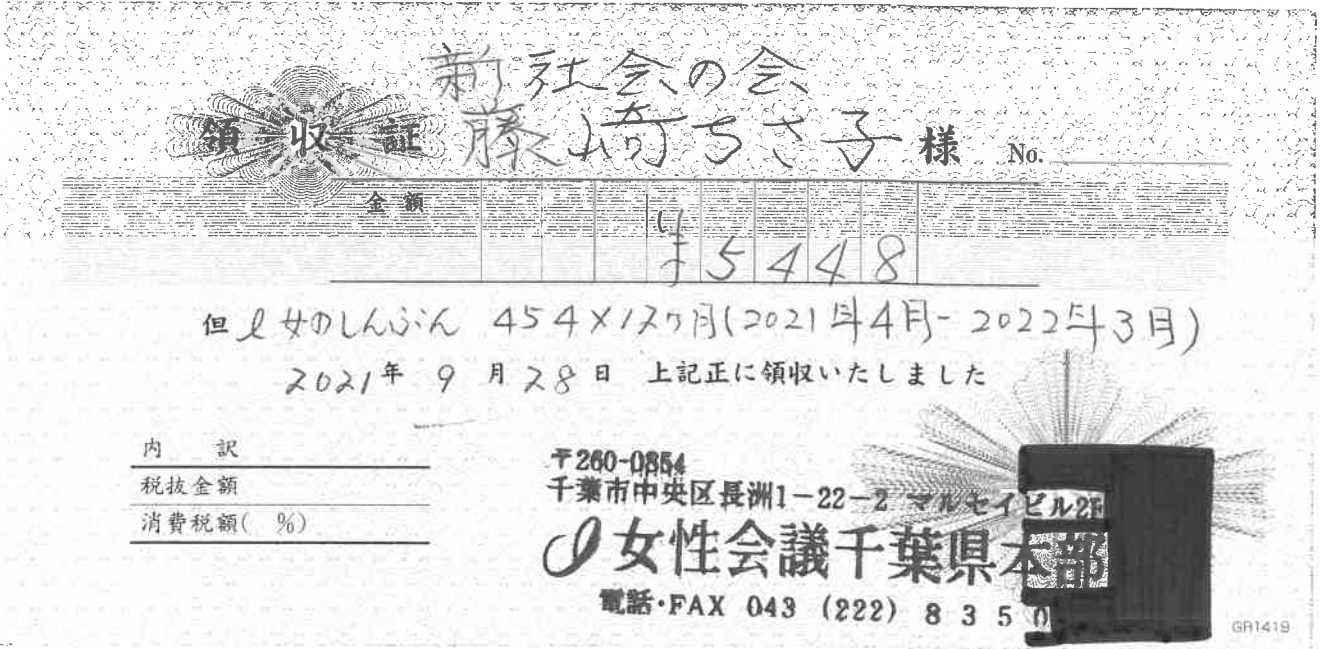 新社会の会
領収証 藤崎ちさ子 様 No.
金額 ¥5448
但 ℓ女のしんぶん 454×12ヶ月(2021年4月-2022年3月)
2021年 9月28日 上記正に領収いたしました
内訳
税抜金額
消費税額( %)
〒260-0854
千葉市中央区長洲1-22-2 マルセイビル2F
I女性会議千葉県本部
電話・FAX 043 (222) 8350
GR1419